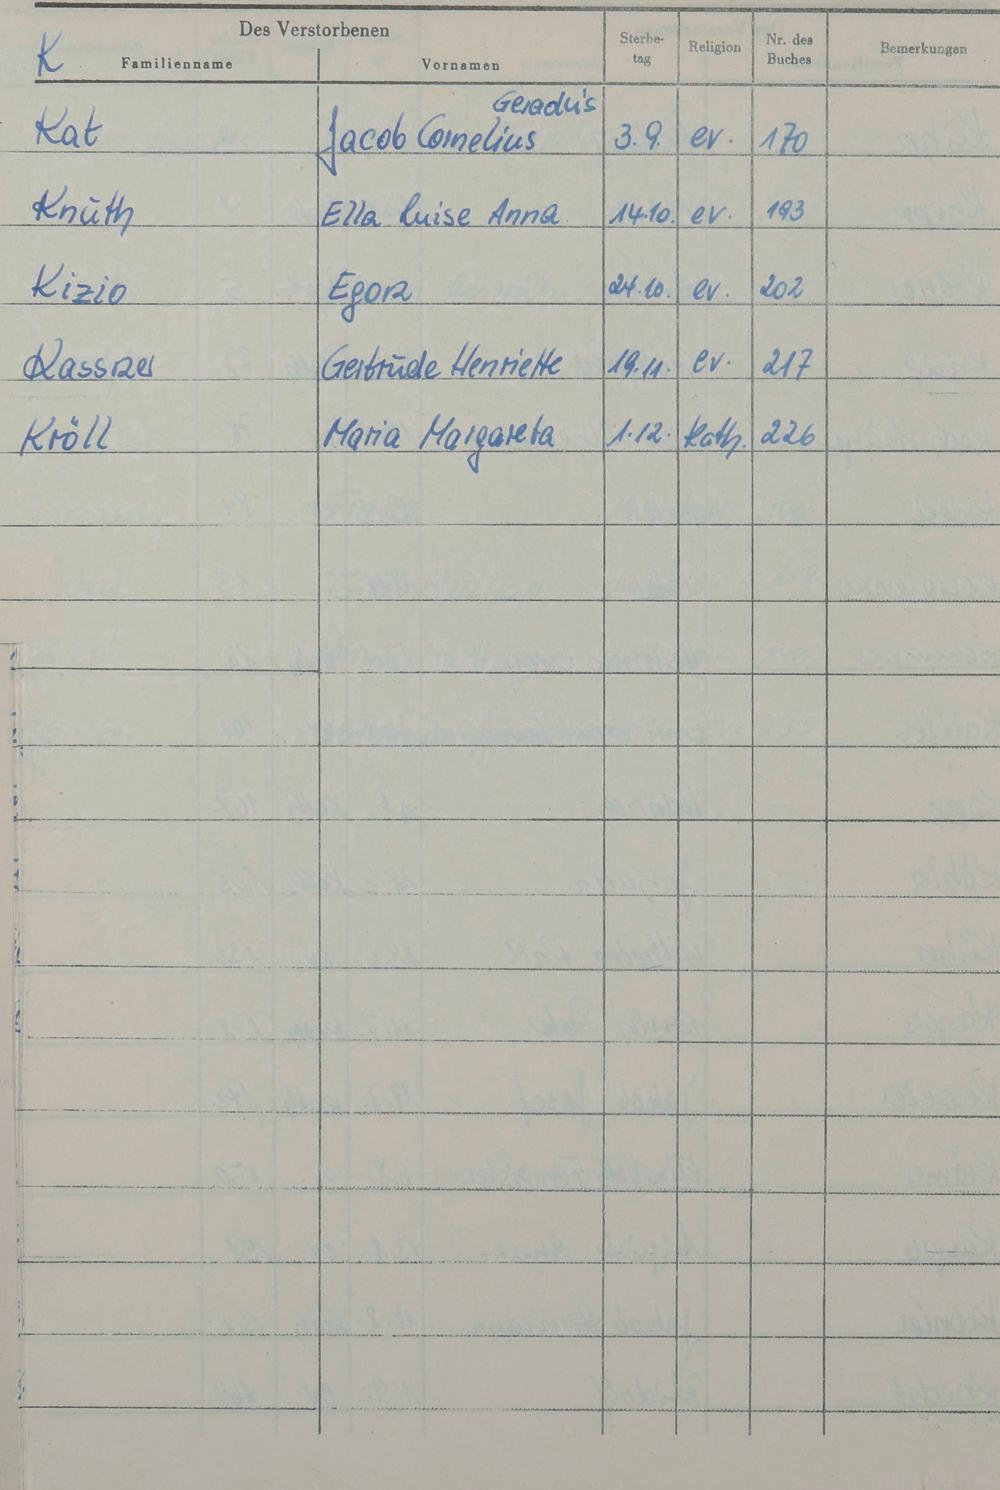 K
Des Verstorbenen
Familienname Vornamen Sterbe-tag Religion Nr. des Buches Bemerkungen
Geradus
Kat Jacob Cornelius 3.9. ev. 170
Knuth Ella Luise Anna 14.10. ev. 193
Kizio Egon 24.10. ev. 202
Kassner Gertrude Henriette 19.11. ev. 217
Kröll Maria Margareta 1.12. Kath. 226